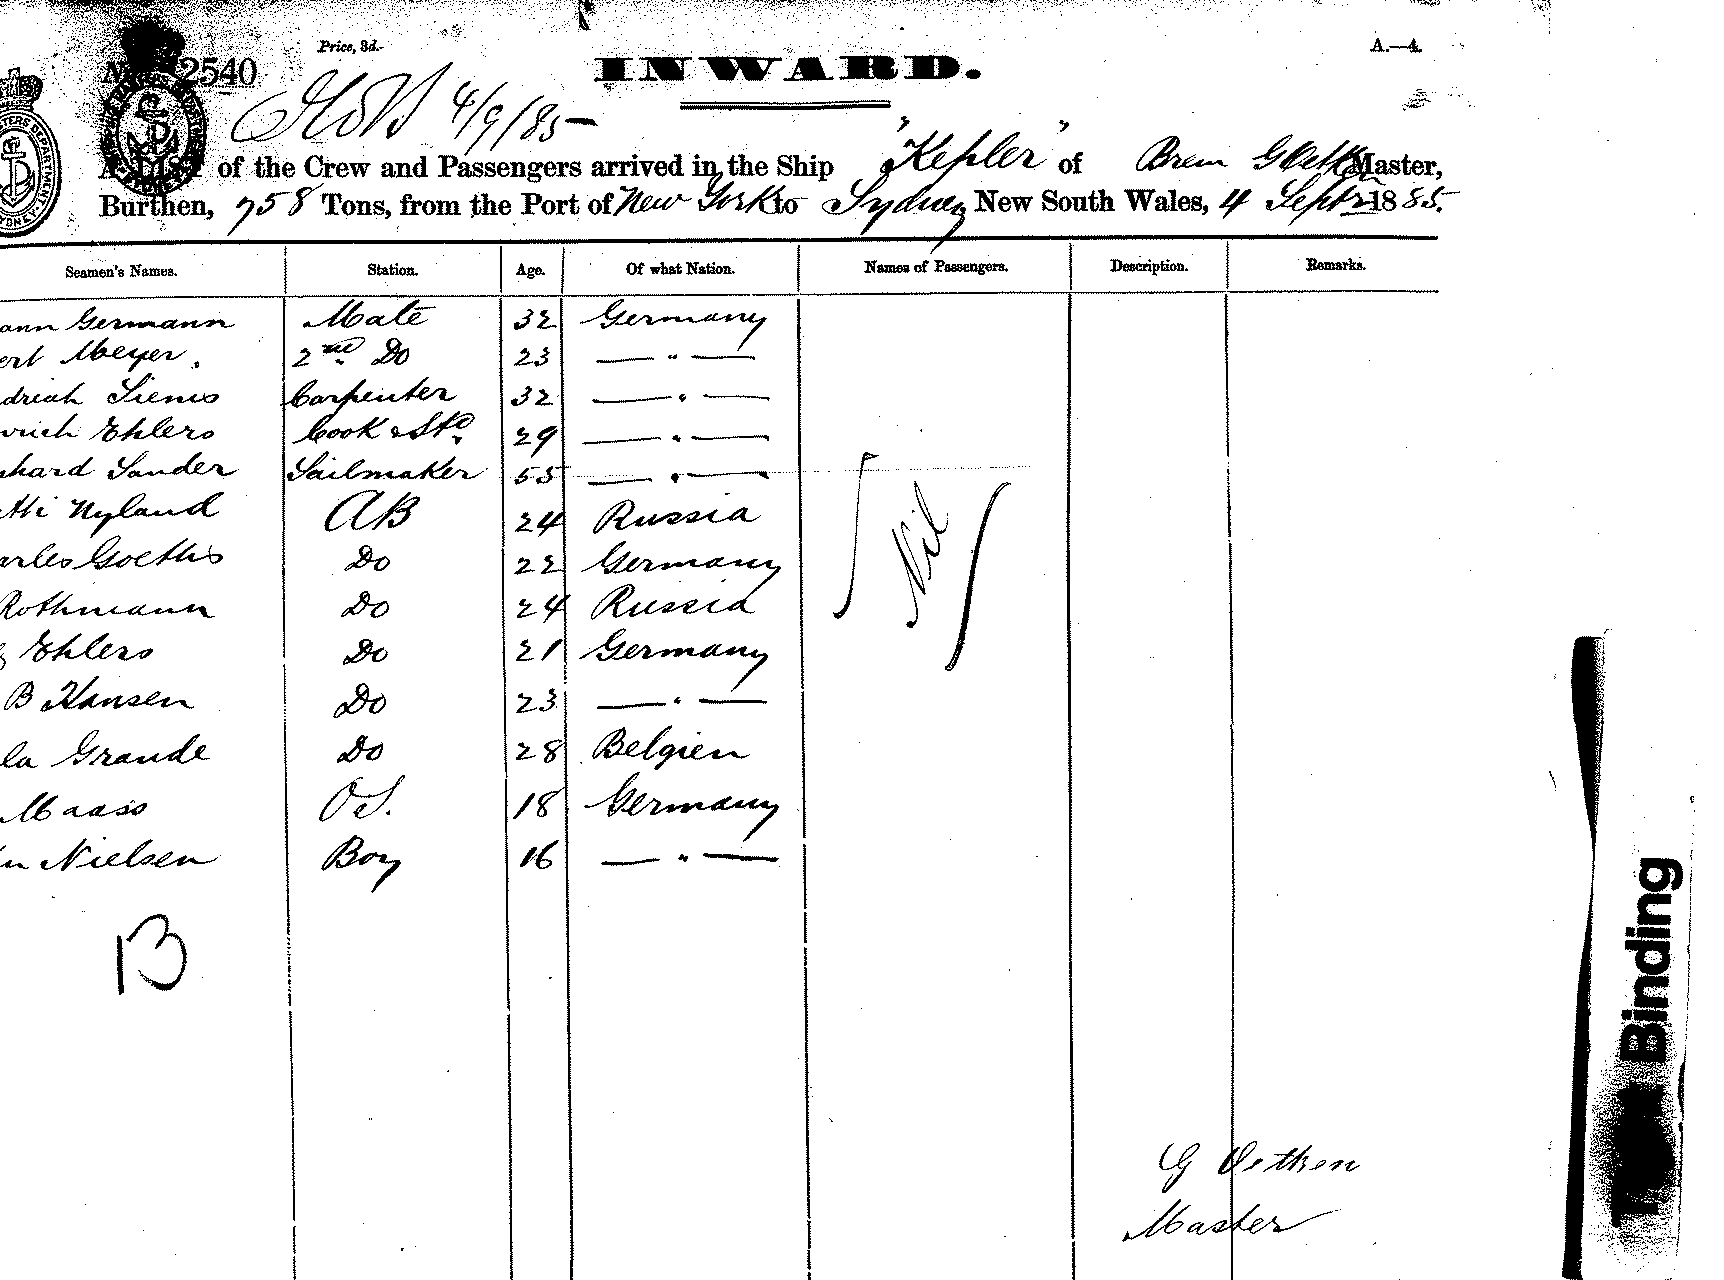 Price, 3d.
A.—4.
2540
INWARD.
4/9/85
of the Crew and Passengers arrived in the Ship "Kepler" of Brem G Oetken Master,
Burthen, 758 Tons, from the Port of New York to Sydney New South Wales, 4 Septr 1885.
Seamen's Names. Station. Age. Of what Nation. Names of Passengers. Description. Remarks.
ann Germann Mate 32 Germany
ert Meyer. 2nd Do 23 — " —
drich Siems Carpenter 32 — " —
nrich Ehlers Cook & Std. 29 — " —
nhard Sander Sailmaker 55 — " —
Nyland AB 24 Russia
Nil
arles Goethis Do 22 Germany
Rothmann Do 24 Russia
Ehlers Do 21 Germany
B Hansen Do 23 — " —
la Grande Do 28 Belgien
Maass OS. 18 Germany
Nielsen Boy 16 — " —
13
G Oetken
Master
Binding